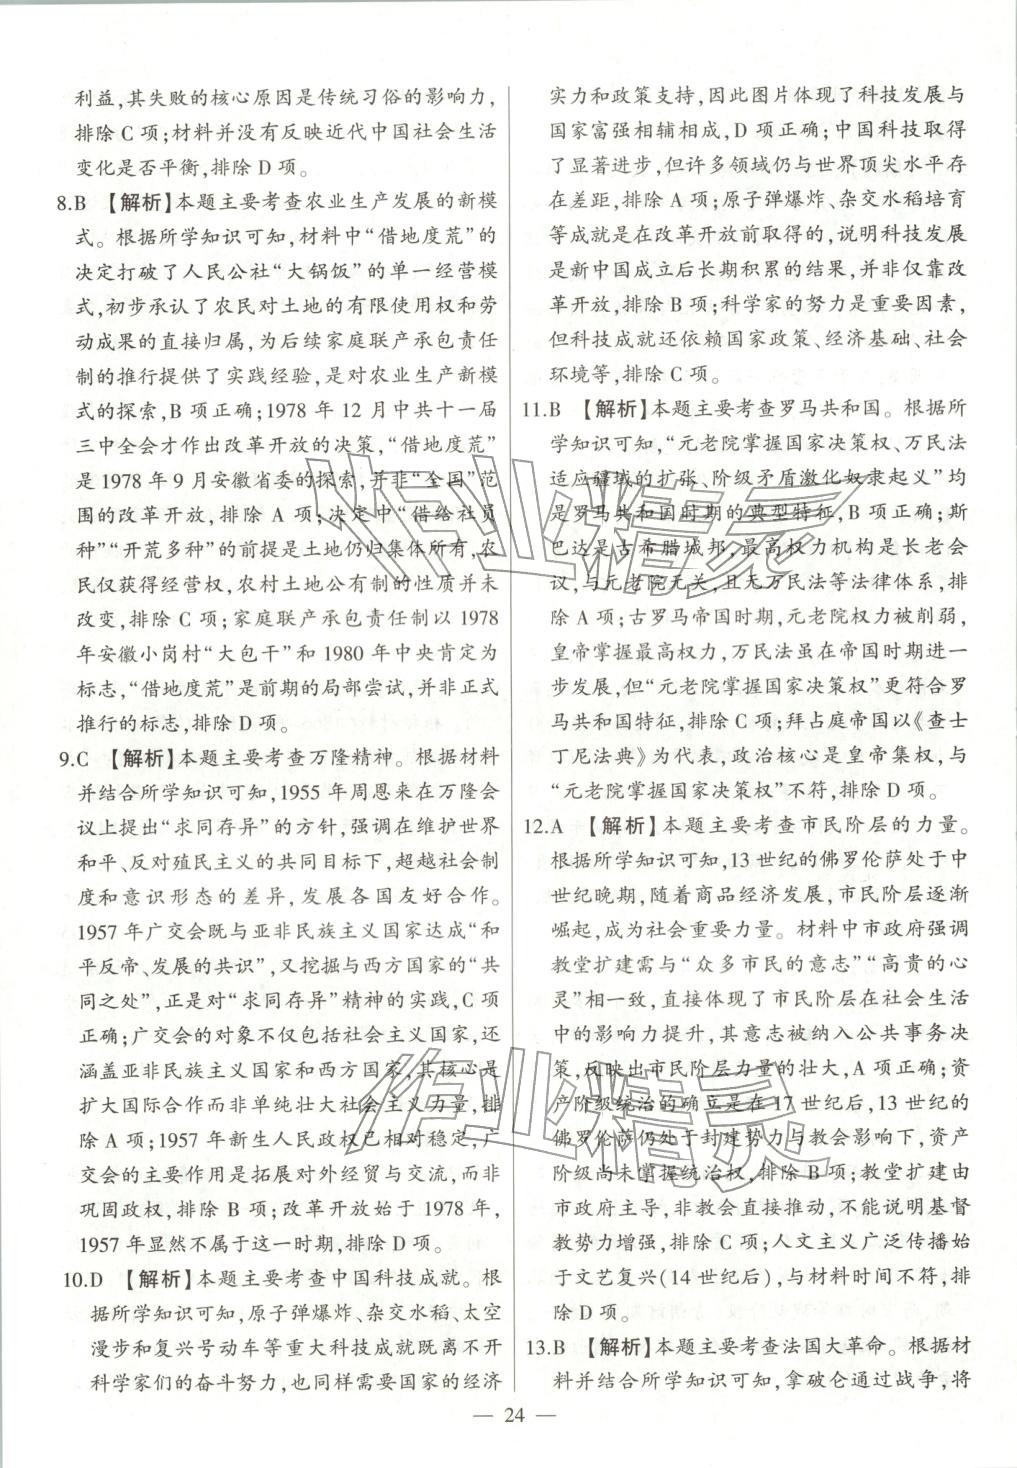 利益,其失败的核心原因是传统习俗的影响力,
排除C项;材料并没有反映近代中国社会生活
变化是否平衡,排除D项。
8.B 【解析】本题主要考查农业生产发展的新模
式。根据所学知识可知,材料中“借地度荒”的
决定打破了人民公社“大锅饭”的单一经营模
式,初步承认了农民对土地的有限使用权和劳
动成果的直接归属,为后续家庭联产承包责任
制的推行提供了实践经验,是对农业生产新模
式的探索,B项正确;1978年12月中共十一届
三中全会才作出改革开放的决策,“借地度荒”
是1978年9月安徽省委的探索,并非“全国”范
围的改革开放,排除A项;决定中“借给社员
种”“开荒多种”的前提是土地仍归集体所有,农
民仅获得经营权,农村土地公有制的性质并未
改变,排除C项;家庭联产承包责任制以1978
年安徽小岗村“大包干”和1980年中央肯定为
标志,“借地度荒”是前期的局部尝试,并非正式
推行的标志,排除D项。
9.C 【解析】本题主要考查万隆精神。根据材料
并结合所学知识可知,1955年周恩来在万隆会
议上提出“求同存异”的方针,强调在维护世界
和平、反对殖民主义的共同目标下,超越社会制
度和意识形态的差异,发展各国友好合作。
1957年广交会既与亚非民族主义国家达成“和
平反帝、发展的共识”,又挖掘与西方国家的“共
同之处”,正是对“求同存异”精神的实践,C项
正确;广交会的对象不仅包括社会主义国家,还
涵盖亚非民族主义国家和西方国家,其核心是
扩大国际合作而非单纯壮大社会主义力量,排
除A项;1957年新生人民政权已相对稳定,广
交会的主要作用是拓展对外经贸与交流,而非
巩固政权,排除B项;改革开放始于1978年,
1957年显然不属于这一时期,排除D项。
10.D 【解析】本题主要考查中国科技成就。根
据所学知识可知,原子弹爆炸、杂交水稻、太空
漫步和复兴号动车等重大科技成就既离不开
科学家们的奋斗努力,也同样需要国家的经济
实力和政策支持,因此图片体现了科技发展与
国家富强相辅相成,D项正确;中国科技取得
了显著进步,但许多领域仍与世界顶尖水平存
在差距,排除A项;原子弹爆炸、杂交水稻培育
等成就是在改革开放前取得的,说明科技发展
是新中国成立后长期积累的结果,并非仅靠改
革开放,排除B项;科学家的努力是重要因素,
但科技成就还依赖国家政策、经济基础、社会
环境等,排除C项。
11.B 【解析】本题主要考查罗马共和国。根据所
学知识可知,“元老院掌握国家决策权、万民法
适应疆域的扩张、阶级矛盾激化奴隶起义”均
是罗马共和国时期的典型特征,B项正确;斯
巴达是古希腊城邦,最高权力机构是长老会
议,与元老院无关,且无万民法等法律体系,排
除A项;古罗马帝国时期,元老院权力被削弱,
皇帝掌握最高权力,万民法虽在帝国时期进一
步发展,但“元老院掌握国家决策权”更符合罗
马共和国特征,排除C项;拜占庭帝国以《查士
丁尼法典》为代表,政治核心是皇帝集权,与
“元老院掌握国家决策权”不符,排除D项。
12.A 【解析】本题主要考查市民阶层的力量。
根据所学知识可知,13世纪的佛罗伦萨处于中
世纪晚期,随着商品经济发展,市民阶层逐渐
崛起,成为社会重要力量。材料中市政府强调
教堂扩建需与“众多市民的意志”“高贵的心
灵”相一致,直接体现了市民阶层在社会生活
中的影响力提升,其意志被纳入公共事务决
策,反映出市民阶层力量的壮大,A项正确;资
产阶级统治的确立是在17世纪后,13世纪的
佛罗伦萨仍处于封建势力与教会影响下,资产
阶级尚未掌握统治权,排除B项;教堂扩建由
市政府主导,非教会直接推动,不能说明基督
教势力增强,排除C项;人文主义广泛传播始
于文艺复兴(14世纪后),与材料时间不符,排
除D项。
13.B 【解析】本题主要考查法国大革命。根据材
料并结合所学知识可知,拿破仑通过战争,将
— 24 —
作业精灵
作业精灵